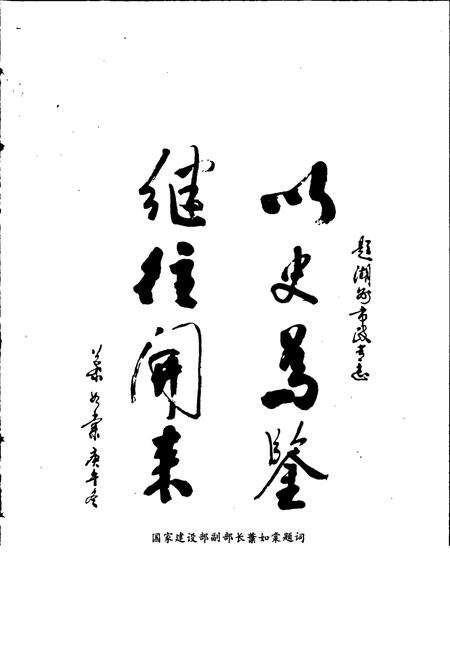 题湖北市政专志
以史为鉴
继往开来
叶如棠 庚午冬
国家建设部副部长叶如棠题词